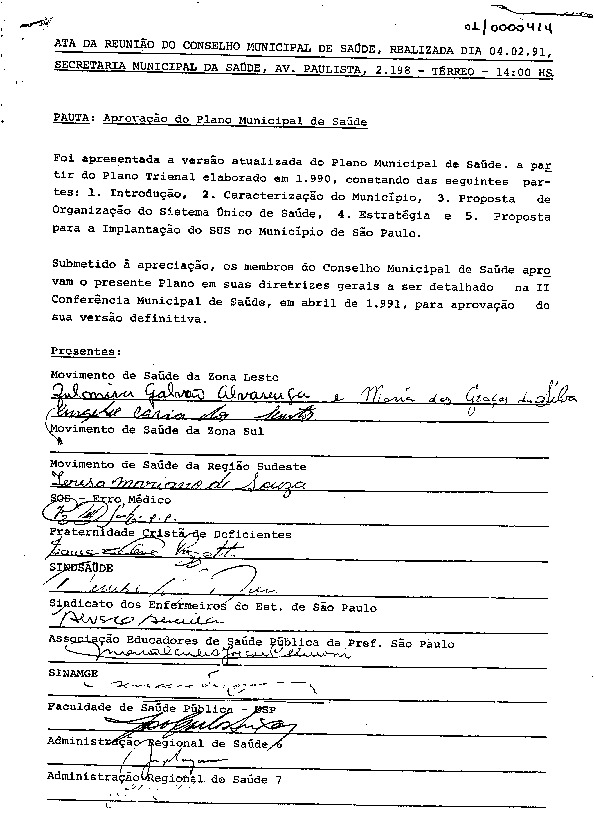 01/0000414
ATA DA REUNIÃO DO CONSELHO MUNICIPAL DE SAÚDE, REALIZADA DIA 04.02.91,
SECRETARIA MUNICIPAL DA SAÚDE, AV. PAULISTA, 2.198 - TÉRREO - 14:00 HS
PAUTA: Aprovação do Plano Municipal de Saúde
Foi apresentada a versão atualizada do Plano Municipal de Saúde. a par
tir do Plano Trienal elaborado em 1.990, constando das seguintes par-
tes: 1. Introdução, 2. Caracterização do Município, 3. Proposta de
Organização do Sistema Único de Saúde, 4. Estratégia e 5. Proposta
para a Implantação do SUS no Município de São Paulo.
Submetido à apreciação, os membros do Conselho Municipal de Saúde apro
vam o presente Plano em suas diretrizes gerais a ser detalhado na II
Conferência Municipal de Saúde, em abril de 1.991, para aprovação de
sua versão definitiva.
Presentes:
Movimento de Saúde da Zona Leste
Galvão Alvarenga e Maria das Graças da Silva
Movimento de Saúde da Zona Sul
Movimento de Saúde da Região Sudeste
Tereza Mariano de Souza
SOS - Erro Médico
Fraternidade Cristã de Deficientes
SINDSAÚDE
Sindicato dos Enfermeiros do Est. de São Paulo
Associação Educadores de Saúde Pública da Pref. São Paulo
SINAMGE
Faculdade de Saúde Pública - USP
Administração Regional de Saúde 6
Administração Regional de Saúde 7